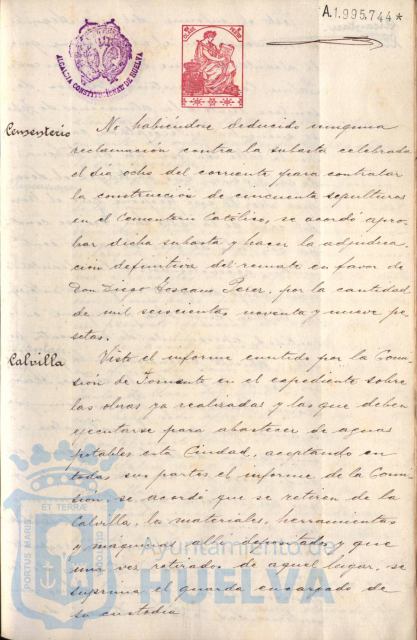 A.1.995.744*
ALCALDIA CONSTITUCIONAL DE HUELVA
Cementerio
No habiéndose deducido ninguna
reclamación contra la subasta celebrada
el dia ocho del corriente para contratar
la construccion de cincuenta sepulturas
en el Cementerio Católico, se acordó apro-
bar dicha subasta y hacer la adjudica-
ción definitiva del remate en favor de
Don Diego Toscano Perez, por la cantidad
de mil seiscientas noventa y nueve pe-
setas.
Calvilla
Visto el informe emitido por la Comi-
sión de Fomento en el expediente sobre
las obras ya realizadas y las que deben
ejecutarse para abastecer de aguas
potables esta Ciudad, aceptando en
todas sus partes el informe de la Comi-
sión, se acordó que se retiren de la
Calvilla, los materiales, herramientas
y máquinas allí depositados y que
una vez retirados de aquel lugar, se
suprima el guarda encargado de
su custodia
PORTUS MARIS ET TERRAE CUSTODIA
Ayuntamiento de
HUELVA